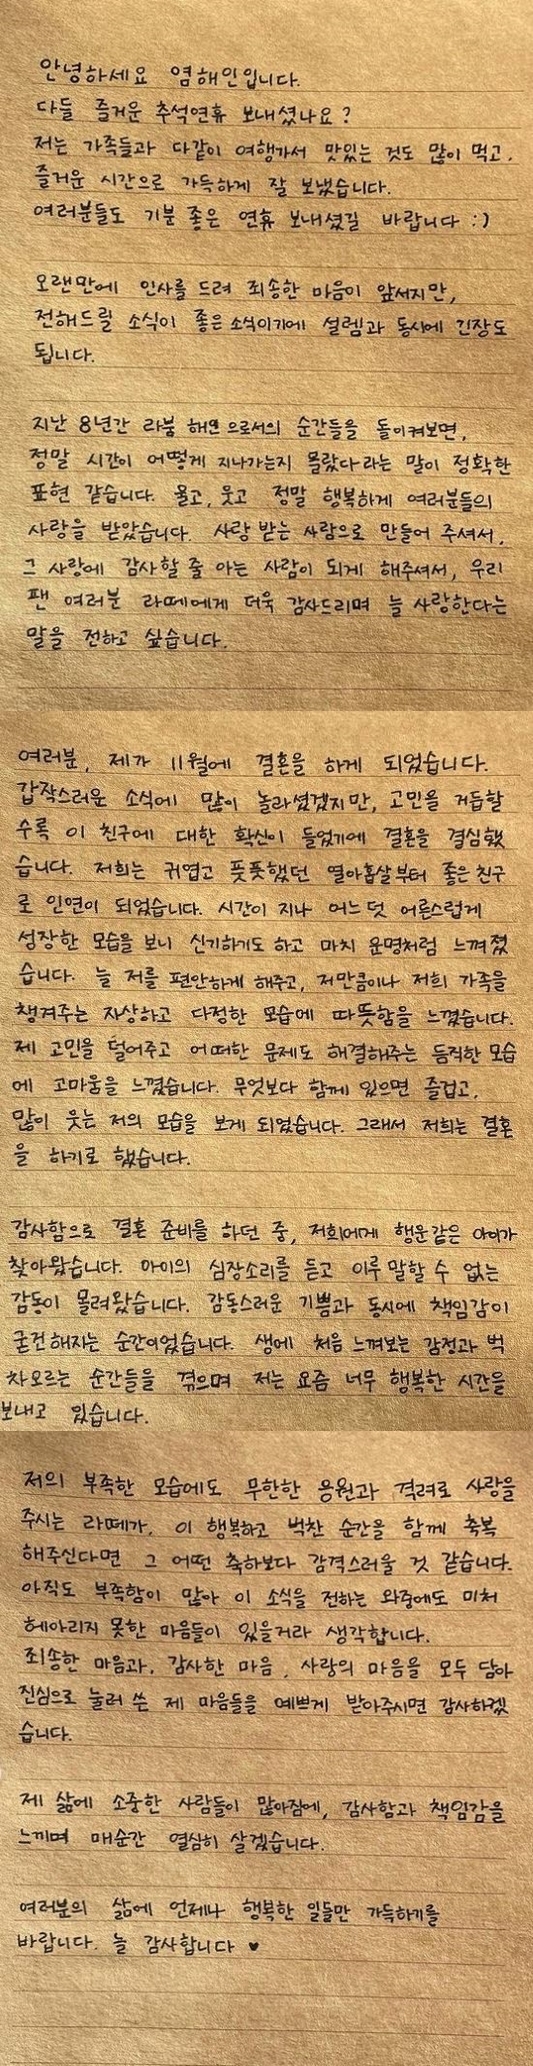 안녕하세요 염해인입니다.
다들 즐거운 추석연휴 보내셨나요?
저는 가족들과 다같이 여행가서 맛있는 것도 많이 먹고.
즐거운 시간으로 가득하게 잘 보냈습니다.
여러분들도 기분 좋은 연휴 보내셨길 바랍니다 :)
오랜만에 인사를 드려 죄송한 마음이 앞서지만,
전해드릴 소식이 좋은 소식이기에 설렘과 동시에 긴장도
됩니다.
지난 8년간 라붐 해인으로서의 순간들을 돌이켜보면,
정말 시간이 어떻게 지나가는지 몰랐다라는 말이 정확한
표현 같습니다. 울고, 웃고 정말 행복하게 여러분들의
사랑을 받았습니다. 사랑 받는 사람으로 만들어 주셔서,
그 사랑에 감사할 줄 아는 사람이 되게 해주셔서, 우리
팬 여러분 라떼에게 더욱 감사드리며 늘 사랑한다는
말을 전하고 싶습니다.
여러분, 제가 11월에 결혼을 하게 되었습니다.
갑작스러운 소식에 많이 놀라셨겠지만, 고민을 거듭할
수록 이 친구에 대한 확신이 들었기에 결혼을 결심했
습니다. 저희는 귀엽고 풋풋했던 열아홉살부터 좋은 친구
로 인연이 되었습니다. 시간이 지나 어느덧 어른스럽게
성장한 모습을 보니 신기하기도 하고 마치 운명처럼 느껴졌
습니다. 늘 저를 편안하게 해주고, 저만큼이나 저희 가족을
챙겨주는 자상하고 다정한 모습에 따뜻함을 느꼈습니다.
제 고민을 덜어주고 어떠한 문제도 해결해주는 듬직한 모습
에 고마움을 느꼈습니다. 무엇보다 함께 있으면 즐겁고,
많이 웃는 저의 모습을 보게 되었습니다. 그래서 저희는 결혼
을 하기로 했습니다.
감사함으로 결혼 준비를 하던 중, 저희에게 행운같은 아이가
찾아왔습니다. 아이의 심장소리를 듣고 이루 말할 수 없는
감동이 몰려왔습니다. 감동스러운 기쁨과 동시에 책임감이
굳건해지는 순간이었습니다. 생에 처음 느껴보는 감정과 벅
차오르는 순간들을 겪으며 저는 요즘 너무 행복한 시간을
보내고 있습니다.
저의 부족한 모습에도 무한한 응원과 격려로 사랑을
주시는 라떼가, 이 행복하고 벅찬 순간을 함께 축복
해주신다면 그 어떤 축하보다 감격스러울 것 같습니다.
아직도 부족함이 많아 이 소식을 전하는 와중에도 미처
헤아리지 못한 마음들이 있을거라 생각합니다.
죄송한 마음과, 감사한 마음, 사랑의 마음을 모두 담아
진심으로 눌러 쓴 제 마음들을 예쁘게 받아주시면 감사하겠
습니다.
제 삶에 소중한 사람들이 많아짐에, 감사함과 책임감을
느끼며 매순간 열심히 살겠습니다.
여러분의 삶에 언제나 행복한 일들만 가득하기를
바랍니다. 늘 감사합니다 ♥